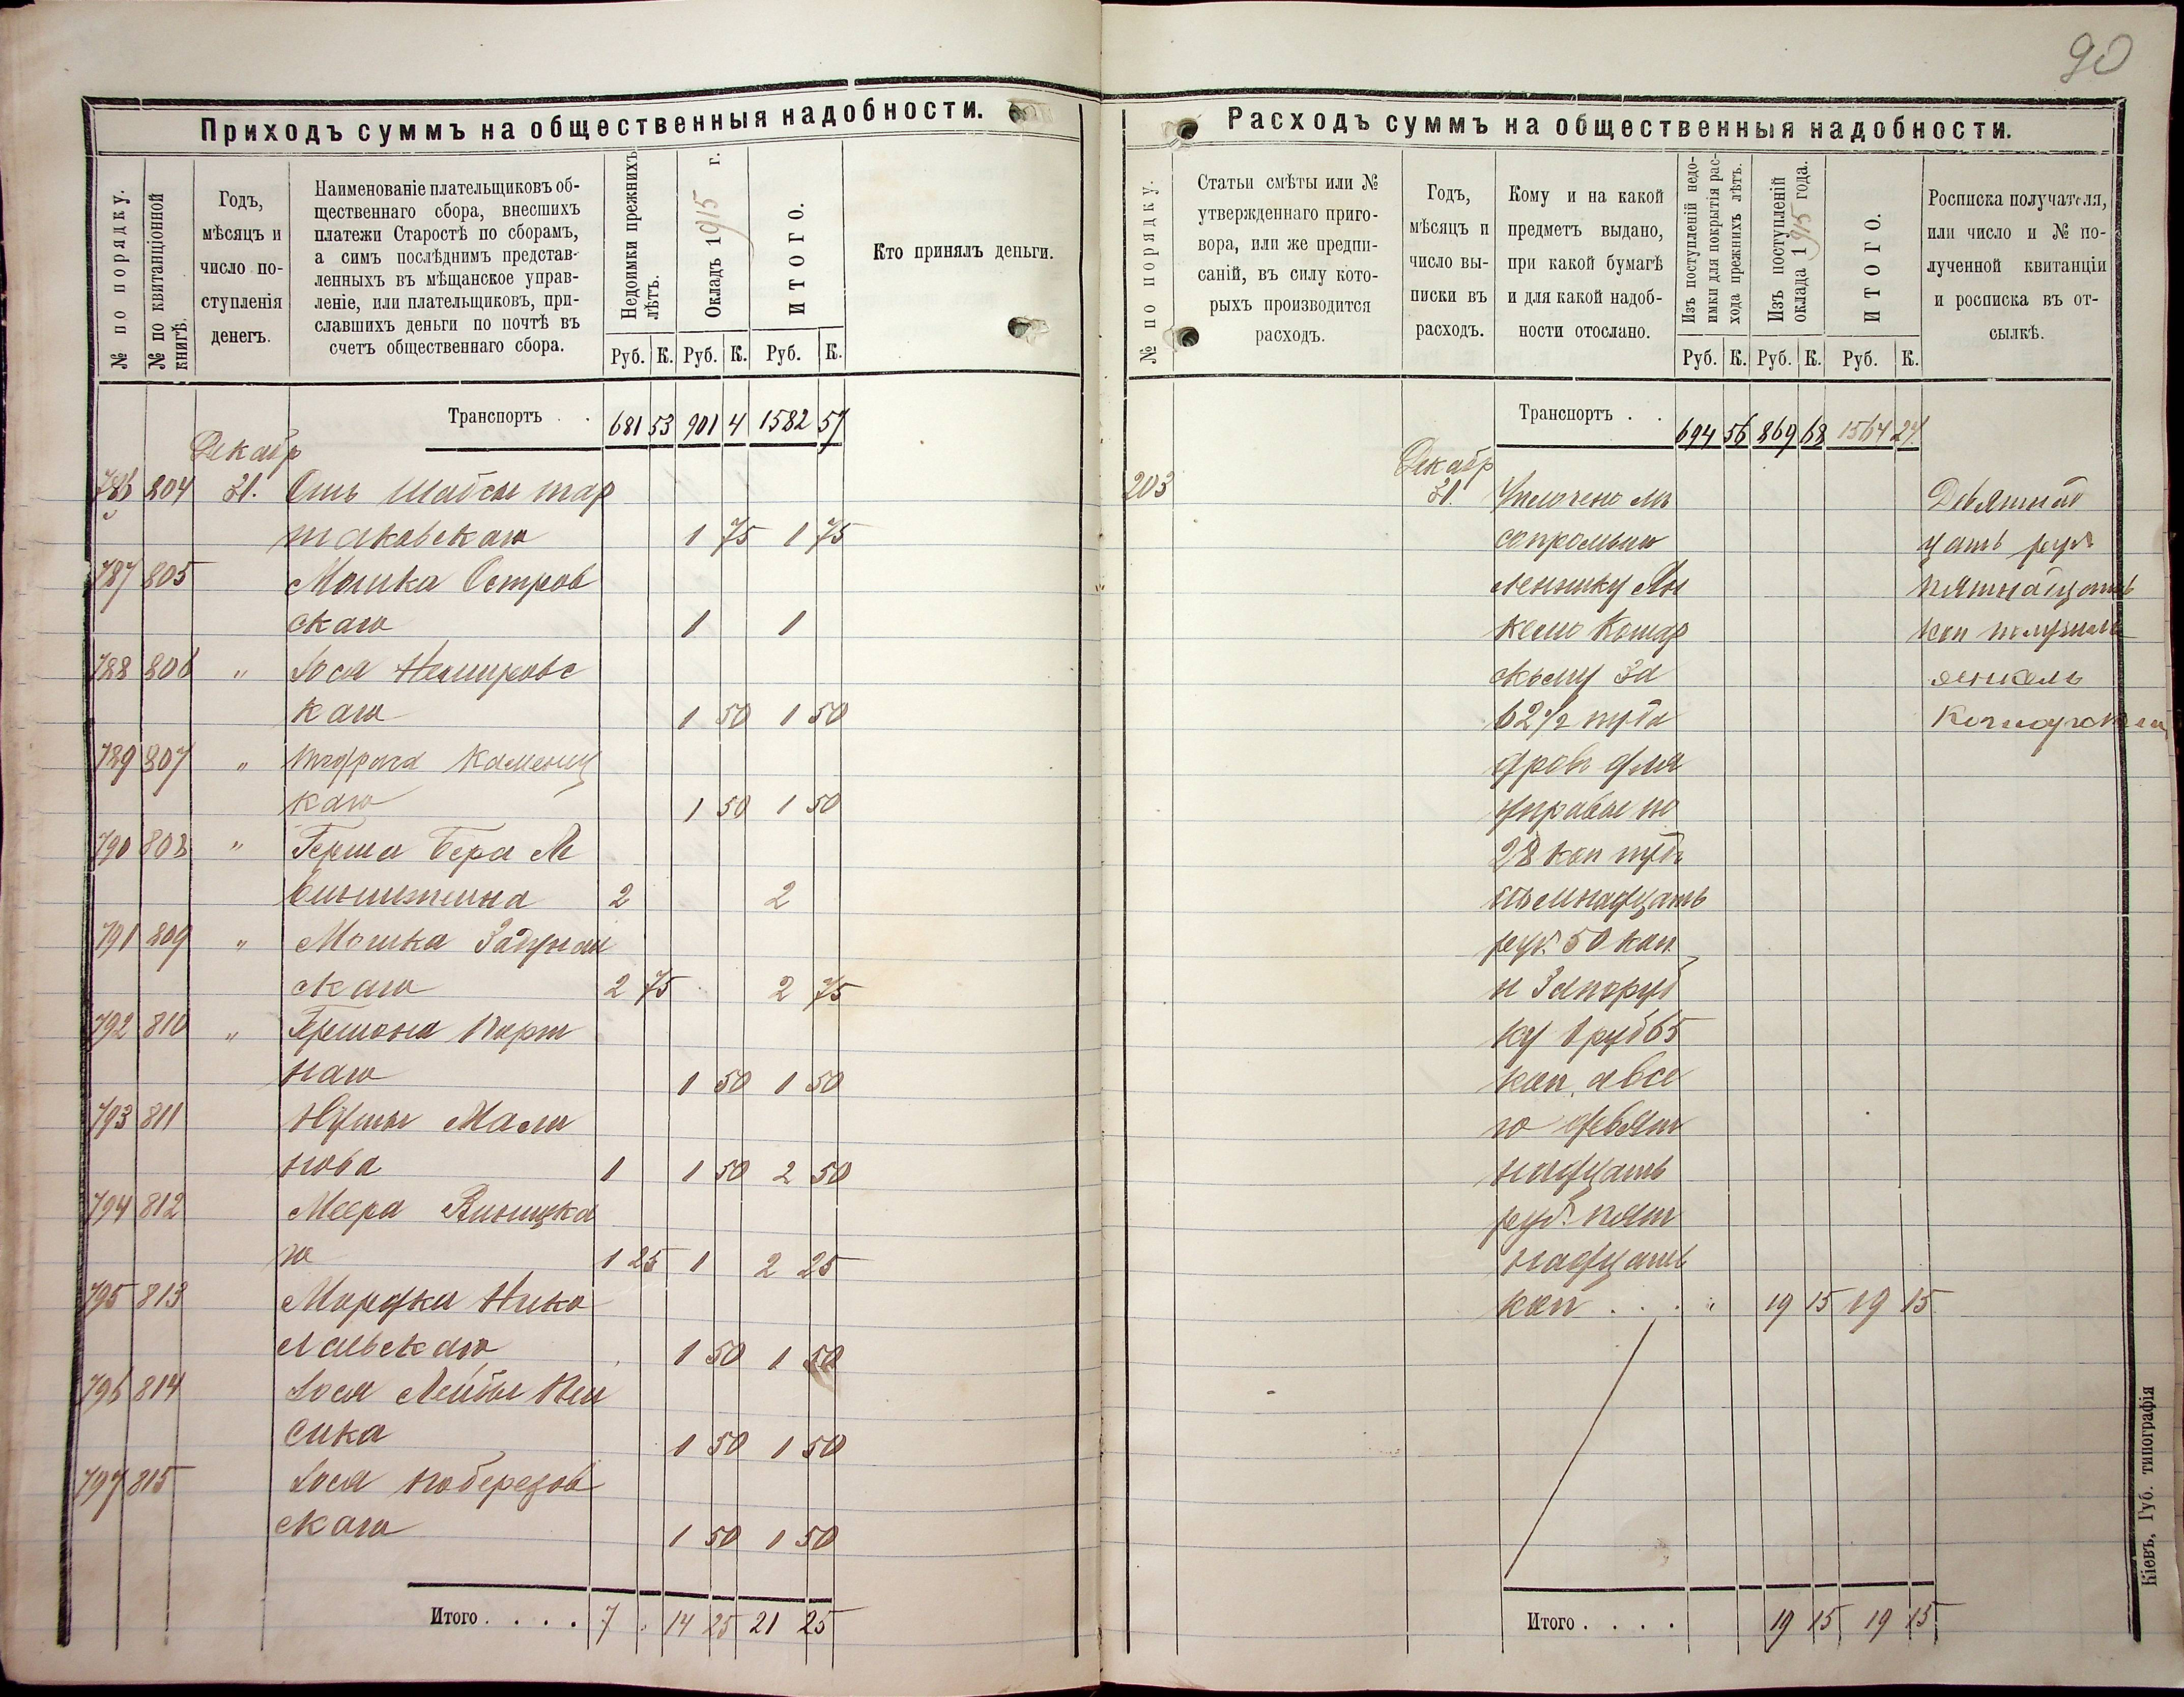 90
Приходъ суммъ на общественныя надобности.
№ по порядку.
№ по квитанціонной книгѣ.
Годъ,
мѣсяцъ и
число по-
ступленія
денегъ.
Наименованіе плательщиковъ об-
щественнаго сбора, внесшихъ
платежи Старостѣ по сборамъ,
а симъ послѣднимъ представ-
ленныхъ въ мѣщанское управ-
леніе, или плательщиковъ, при-
славшихъ деньги по почтѣ въ
счетъ общественнаго сбора.
Недоимки прежнихъ
лѣтъ.
Окладъ 1915 г.
ИТОГО.
Руб. К. Руб. К. Руб. К.
Кто принялъ деньги.
Транспортъ . . 681 53 901 4 1582 57
Декабр
786 804 31. Отъ Шабсы Тар
таковскаго 1 75 1 75
787 805 Мошка Остров
скаго 1 1
788 806 " Іося Немировс
каго 1 50 1 50
789 807 " Каменец
каго 1 50 1 50
790 808 " Герша Бера
2 2
791 809 " Мошка
скаго 2 75 2 75
792 810 " Гершона Порт
наго 1 50 1 50
793 811 Мали
нова 1 1 50 2 50
794 812 Меера Виницка
го 1 25 1 2 25
795 813 Мордка Нико
лаевскаго 1 50 1 50
796 814 Іося Лейбы
сика 1 50 1 50
797 815 Іося Поберезов
скаго 1 50 1 50
Итого . . . . 7 . 14 25 21 25
Расходъ суммъ на общественныя надобности.
№ по порядку.
Статьи смѣты или №
утвержденнаго приго-
вора, или же предпи-
саній, въ силу кото-
рыхъ производится
расходъ.
Годъ,
мѣсяцъ и
число вы-
писки въ
расходъ.
Кому и на какой
предметъ выдано,
при какой бумагѣ
и для какой надоб-
ности отослано.
Изъ поступленій недо-
имки для покрытія рас-
хода прежнихъ лѣтъ.
Изъ поступленій
оклада 1915 года.
ИТОГО.
Руб. К. Руб. К. Руб. К.
Росписка получателя,
или число и № по-
лученной квитанціи
и росписка въ от-
сылкѣ.
Транспортъ . . 694 56 869 68 1564 24
Декабр
203 31. Уплочено лѣ Девятнад
сопромыш цать руб
леннику Ян пятнадцать
келю Комар коп получилъ
скому за Янкель
62 1/2 пуда Комаровски
дровъ для
управы по
28 коп пудъ
семнадцать
руб. 50 коп.
и за поруб
ку 1 руб 65
коп, а все
го девят
надцать
руб. пят
надцать
коп . . . " 19 15 19 15
Итого . . . . 19 15 19 15
Кіевъ, Губ. типографія